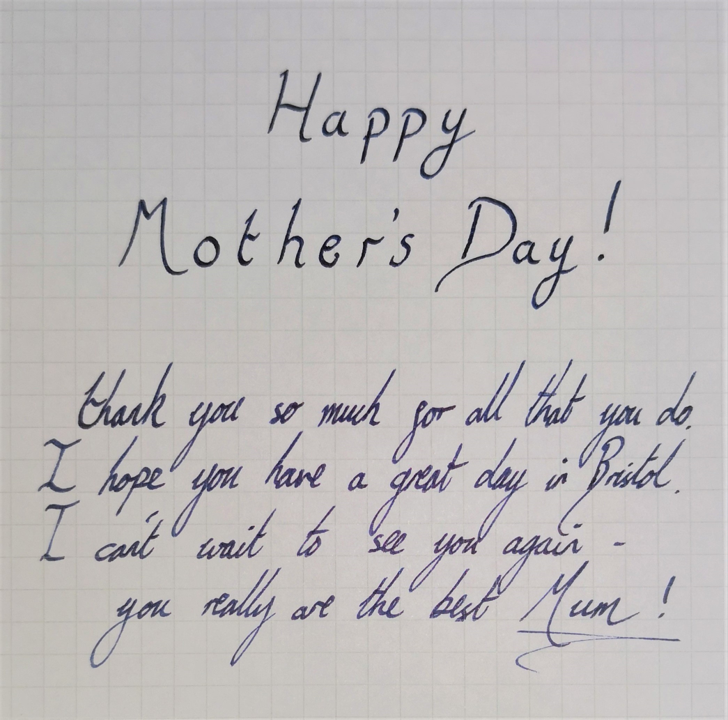 Happy
Mother's Day!
thank you so much for all that you do.
I hope you have a great day in Bristol.
I can't wait to see you again -
you really are the best Mum!